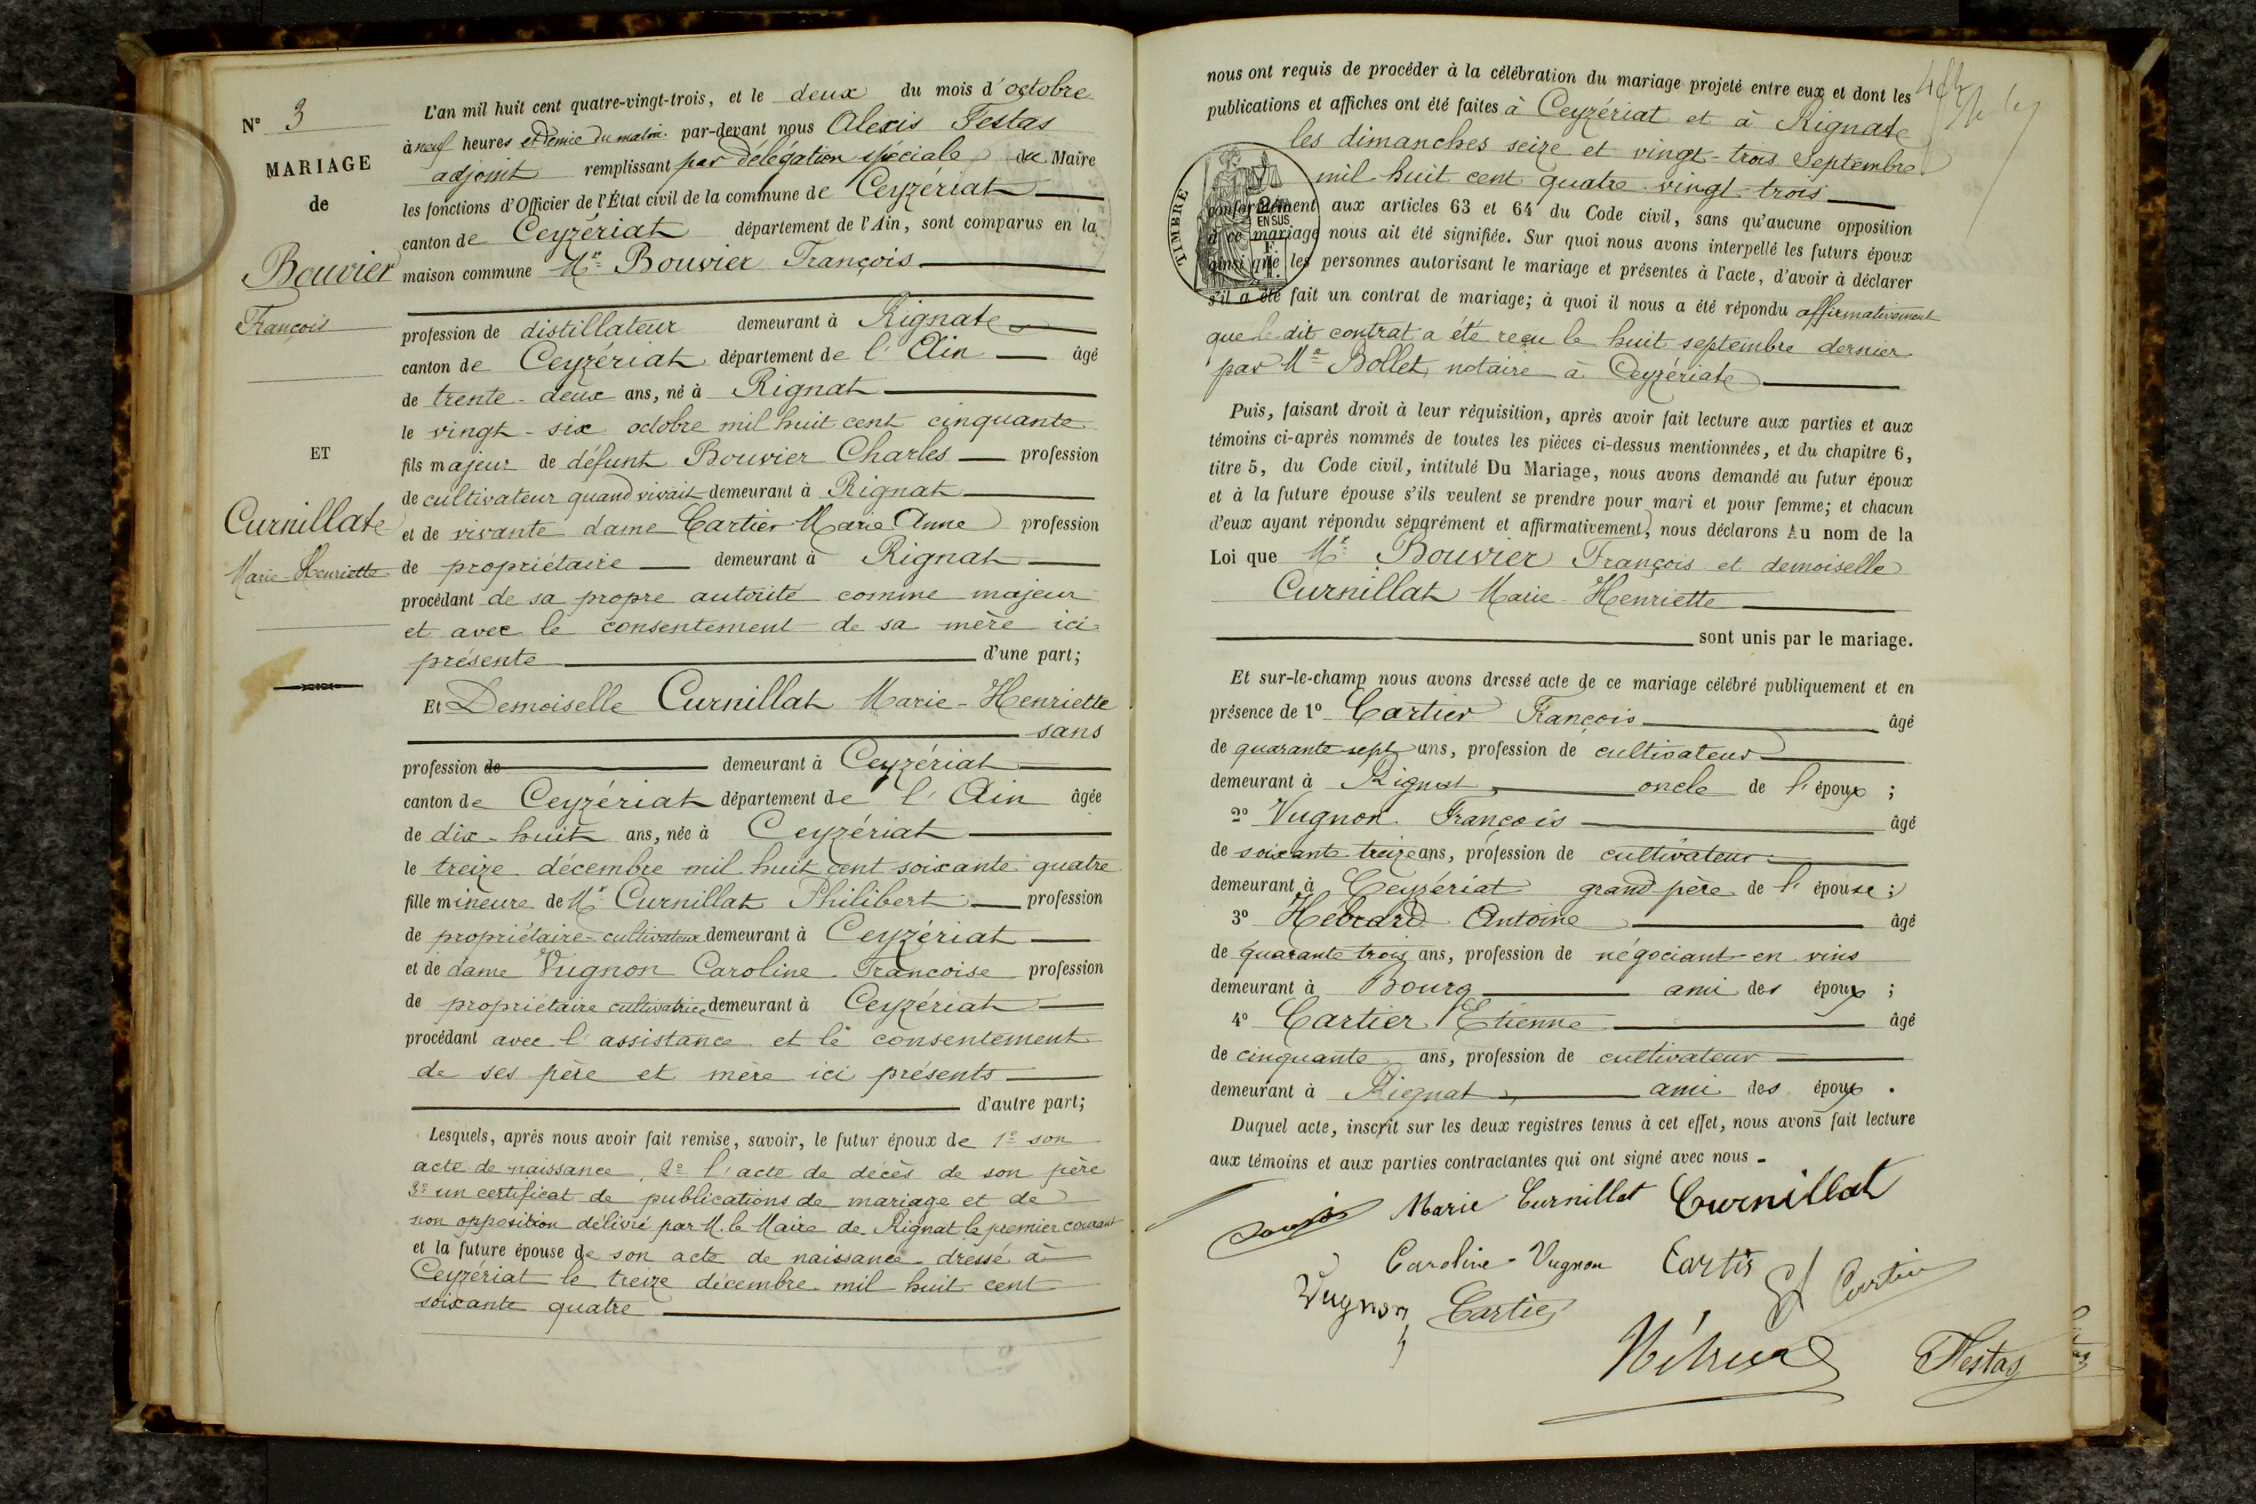 N° 3
MARIAGE
de
Bouvier
François
ET
Curnillat
Marie-Henriette
L'an mil huit cent quatre-vingt-trois, et le deux du mois d'octobre
à neuf heures et demie du matin par-devant nous Alexis Festas
adjoint remplissant par délégation spéciale du Maire
les fonctions d'Officier de l'État civil de la commune de Ceyzériat
canton de Ceyzériat département de l'Ain, sont comparus en la
maison commune Mr Bouvier François
profession de distillateur demeurant à Rignat
canton de Ceyzériat département de l'Ain âgé
de trente-deux ans, né à Rignat
le vingt-six octobre mil huit cent cinquante
fils majeur de défunt Bouvier Charles profession
de cultivateur quand vivait demeurant à Rignat
et de vivante dame Cartier Marie Anne profession
de propriétaire demeurant à Rignat
procédant de sa propre autorité comme majeur
et avec le consentement de sa mère ici
présente d'une part;
Et Demoiselle Curnillat Marie-Henriette
sans
profession de demeurant à Ceyzériat
canton de Ceyzériat département de l'Ain âgée
de dix-huit ans, née à Ceyzériat
le treize décembre mil huit cent soixante quatre
fille mineure de Mr Curnillat Philibert profession
de propriétaire-cultivateur demeurant à Ceyzériat
et de dame Vugnon Caroline Francoise profession
de propriétaire cultivatrice demeurant à Ceyzériat
procédant avec l'assistance et le consentement
de ses père et mère ici présents
d'autre part;
Lesquels, après nous avoir fait remise, savoir, le futur époux de 1° son
acte de naissance, 2° l'acte de decès de son père
3° un certificat de publications de mariage et de
non opposition délivré par M. le Maire de Rignat le premier courant
et la future épouse de son acte de naissance dressé à
Ceyzériat le treize décembre mil huit cent
soixante quatre
nous ont requis de procéder à la célébration du mariage projeté entre eux et dont les
publications et affiches ont été faites à Ceyzériat et à Rignat
les dimanches seize et vingt-trois Septembre
mil huit cent quatre vingt-trois
TIMBRE
2/10
EN SUS
conformément aux articles 63 et 64 du Code civil, sans qu'aucune opposition
à ce mariage nous ait été signifiée. Sur quoi nous avons interpellé les futurs époux
ainsi que les personnes autorisant le mariage et présentes à l'acte, d'avoir à déclarer
s'il a été fait un contrat de mariage; à quoi il nous a été répondu affirmativement
que le dit contrat a été reçu le huit septembre dernier
par Me Bollet, notaire à Ceyzériat
Puis, faisant droit à leur réquisition, après avoir fait lecture aux parties et aux
témoins ci-après nommés de toutes les pièces ci-dessus mentionnées, et du chapitre 6,
titre 5, du Code civil, intitulé Du Mariage, nous avons demandé au futur époux
et à la future épouse s'ils veulent se prendre pour mari et pour femme; et chacun
d'eux ayant répondu séparément et affirmativement, nous déclarons Au nom de la
Loi que Mr Bouvier François et demoiselle
Curnillat Marie Henriette
sont unis par le mariage.
Et sur-le-champ nous avons dressé acte de ce mariage célébré publiquement et en
présence de 1° Cartier François âgé
de quarante sept ans, profession de cultivateur
demeurant à Rignat, oncle de l'époux ;
2° Vugnon François âgé
de soixante treize ans, profession de cultivateur
demeurant à Ceyzériat grand-père de l'épouse ;
3° Hébrard Antoine âgé
de quarante trois ans, profession de négociant en vins
demeurant à Bourg ami des époux ;
4° Cartier Etienne âgé
de cinquante ans, profession de cultivateur
demeurant à Rignat, ami des époux.
Duquel acte, inscrit sur les deux registres tenus à cet effet, nous avons fait lecture
aux témoins et aux parties contractantes qui ont signé avec nous.
Marie Curnillat Curnillat
Caroline Vugnon Cartier
Vugnon Cartier
Hébrard Festas